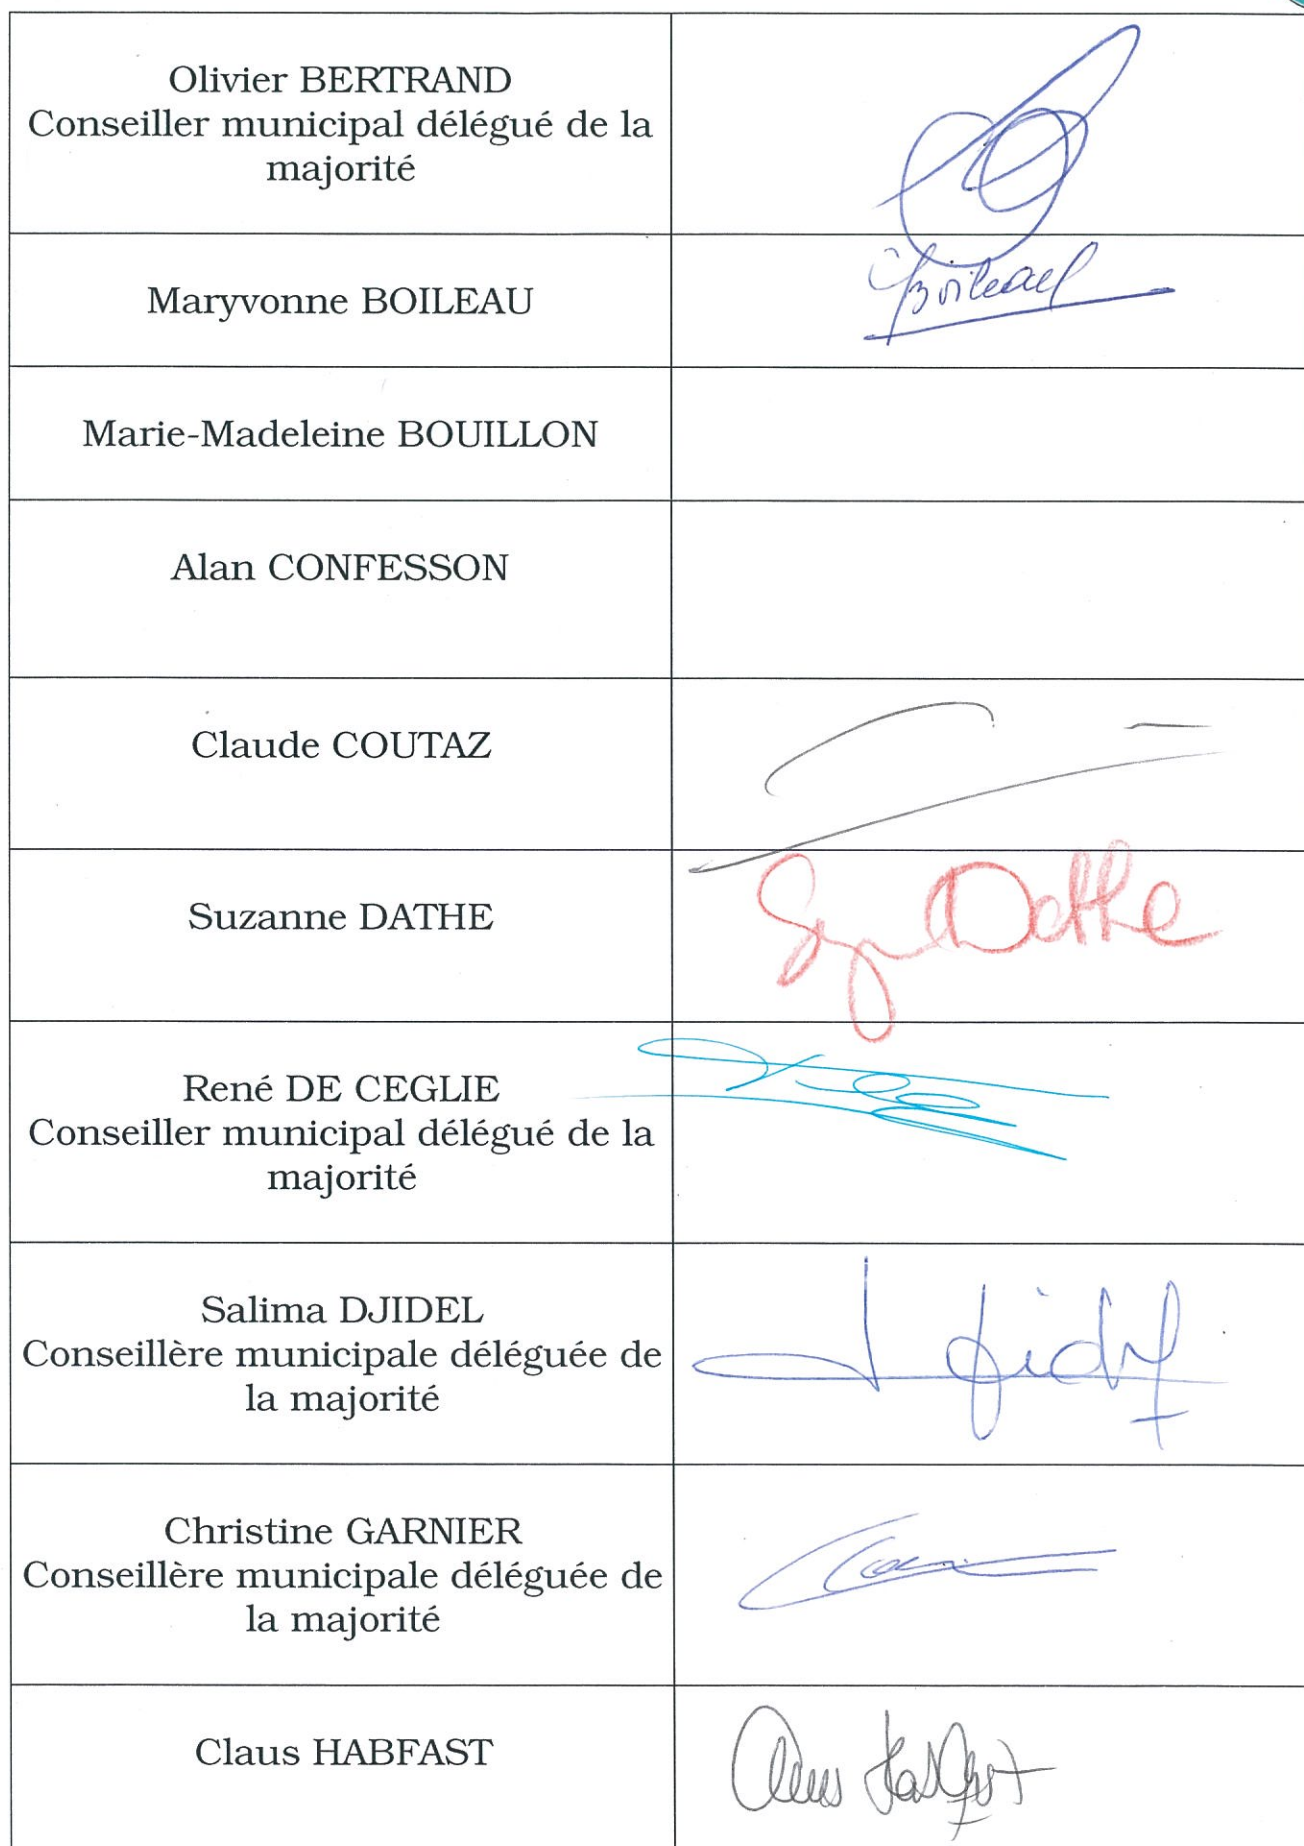 Olivier BERTRAND
Conseiller municipal délégué de la
majorité
Maryvonne BOILEAU
Boileau
Marie-Madeleine BOUILLON
Alan CONFESSON
Claude COUTAZ
Suzanne DATHE
Dathe
René DE CEGLIE
Conseiller municipal délégué de la
majorité
Salima DJIDEL
Conseillère municipale déléguée de
la majorité
Christine GARNIER
Conseillère municipale déléguée de
la majorité
Claus HABFAST
Claus Habfast